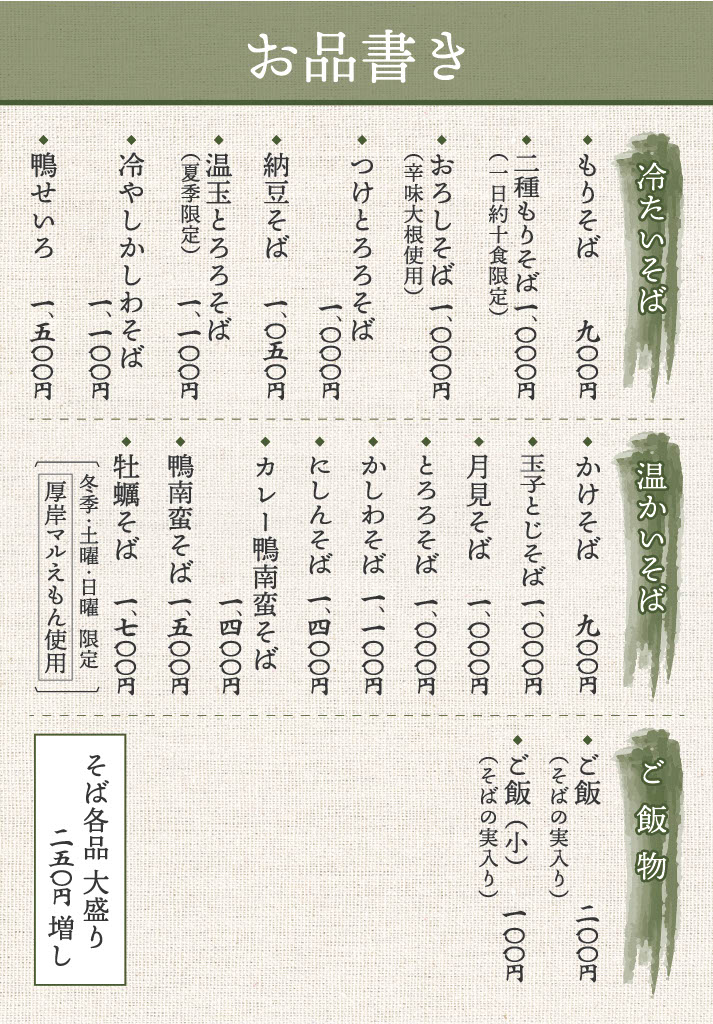 お品書き
冷たいそば
もりそば 九〇〇円
二種もりそば 一、〇〇〇円
(一日約十食限定)
おろしそば 一、〇〇〇円
(辛味大根使用)
つけとろろそば
一、〇〇〇円
納豆そば 一、〇五〇円
温玉とろろそば
(夏季限定) 一、一〇〇円
冷やしかしわそば
一、一〇〇円
鴨せいろ 一、五〇〇円
温かいそば
かけそば 九〇〇円
玉子とじそば 一、〇〇〇円
月見そば 一、〇〇〇円
とろろそば 一、〇〇〇円
かしわそば 一、一〇〇円
にしんそば 一、四〇〇円
カレー鴨南蛮そば
一、四〇〇円
鴨南蛮そば 一、五〇〇円
牡蠣そば 一、七〇〇円
冬季・土曜・日曜 限定
厚岸マルえもん使用
ご飯物
ご飯 二〇〇円
(そばの実入り)
ご飯(小) 一〇〇円
(そばの実入り)
そば各品 大盛り
二五〇円 増し